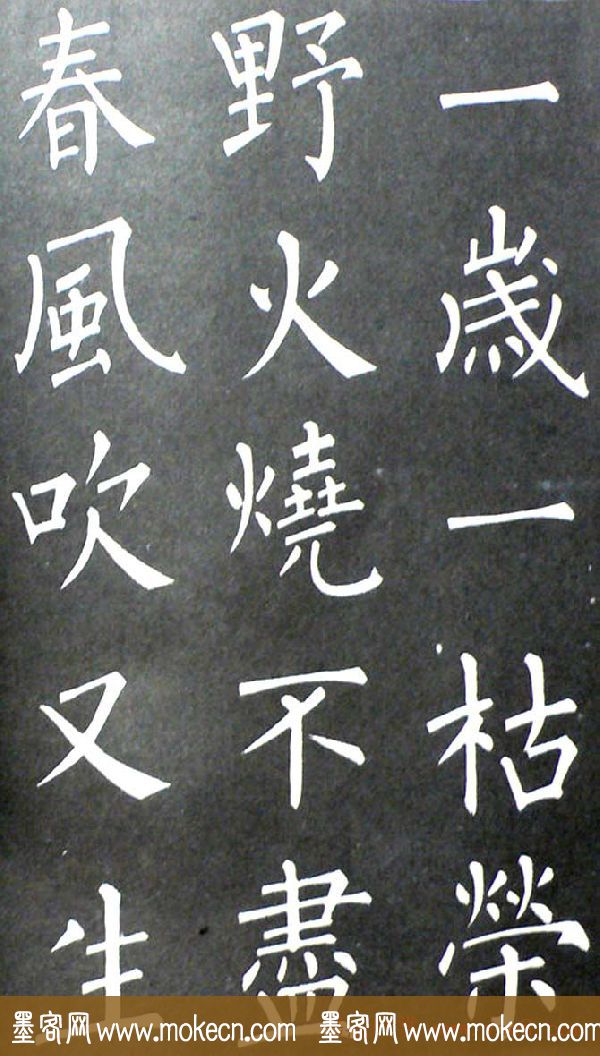 一歲一枯榮
野火燒不盡
春風吹又生
墨客网 www.mokecn.com 墨客网 www.mokecn.com